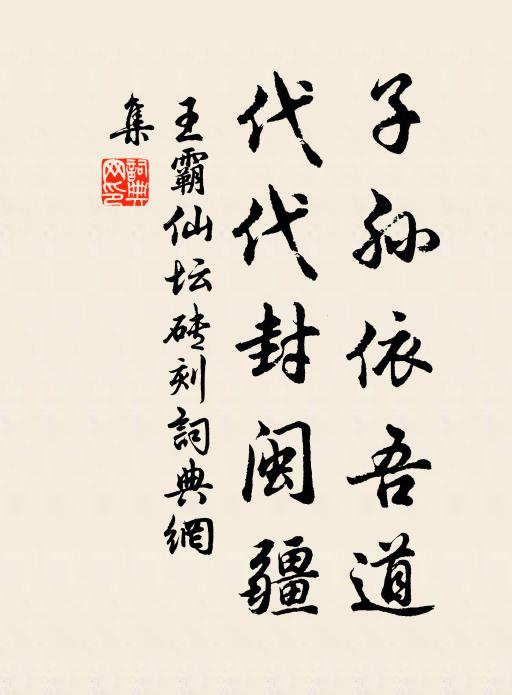 子孙依吾道
代代封闽疆
王霸仙坛砖刻詞典網
集
詞典網印